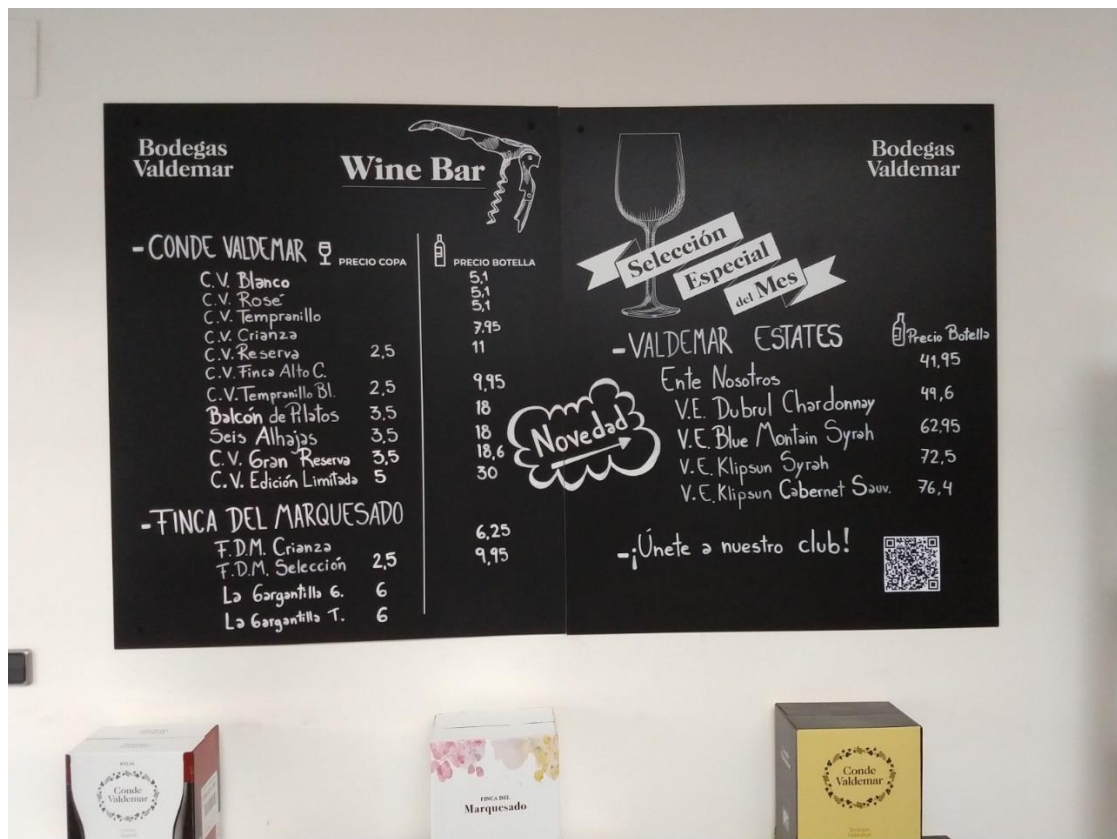 Bodegas
Valdemar
Wine Bar
- CONDE VALDEMAR PRECIO COPA PRECIO BOTELLA
C.V. Blanco 5,1
C.V. Rosé 5,1
C.V. Tempranillo 5,1
C.V. Crianza 7,95
C.V. Reserva 2,5 11
C.V. Finca Alto C.
C.V. Tempranillo Bl. 2,5 9,95
Balcón de Pilatos 3,5 18
Seis Alhajas 3,5 18
C.V. Gran Reserva 3,5 18,6
C.V. Edición Limitada 5 30
- FINCA DEL MARQUESADO
F.D.M. Crianza 6,25
F.D.M. Selección 2,5 9,95
La Gargantilla G. 6
La Gargantilla T. 6
Bodegas
Valdemar
Selección
Especial
del Mes
- VALDEMAR ESTATES Precio Botella
Ente Nosotros 41,95
V.E. Dubrul Chardonnay 49,6
V.E. Blue Montain Syrah 62,95
V.E. Klipsun Syrah 72,5
V.E. Klipsun Cabernet Sauv. 76,4
Novedad
- ¡Únete a nuestro club!
Conde
Valdemar
FINCA DEL
Marquesado
Conde
Valdemar
Bodegas
Valdemar